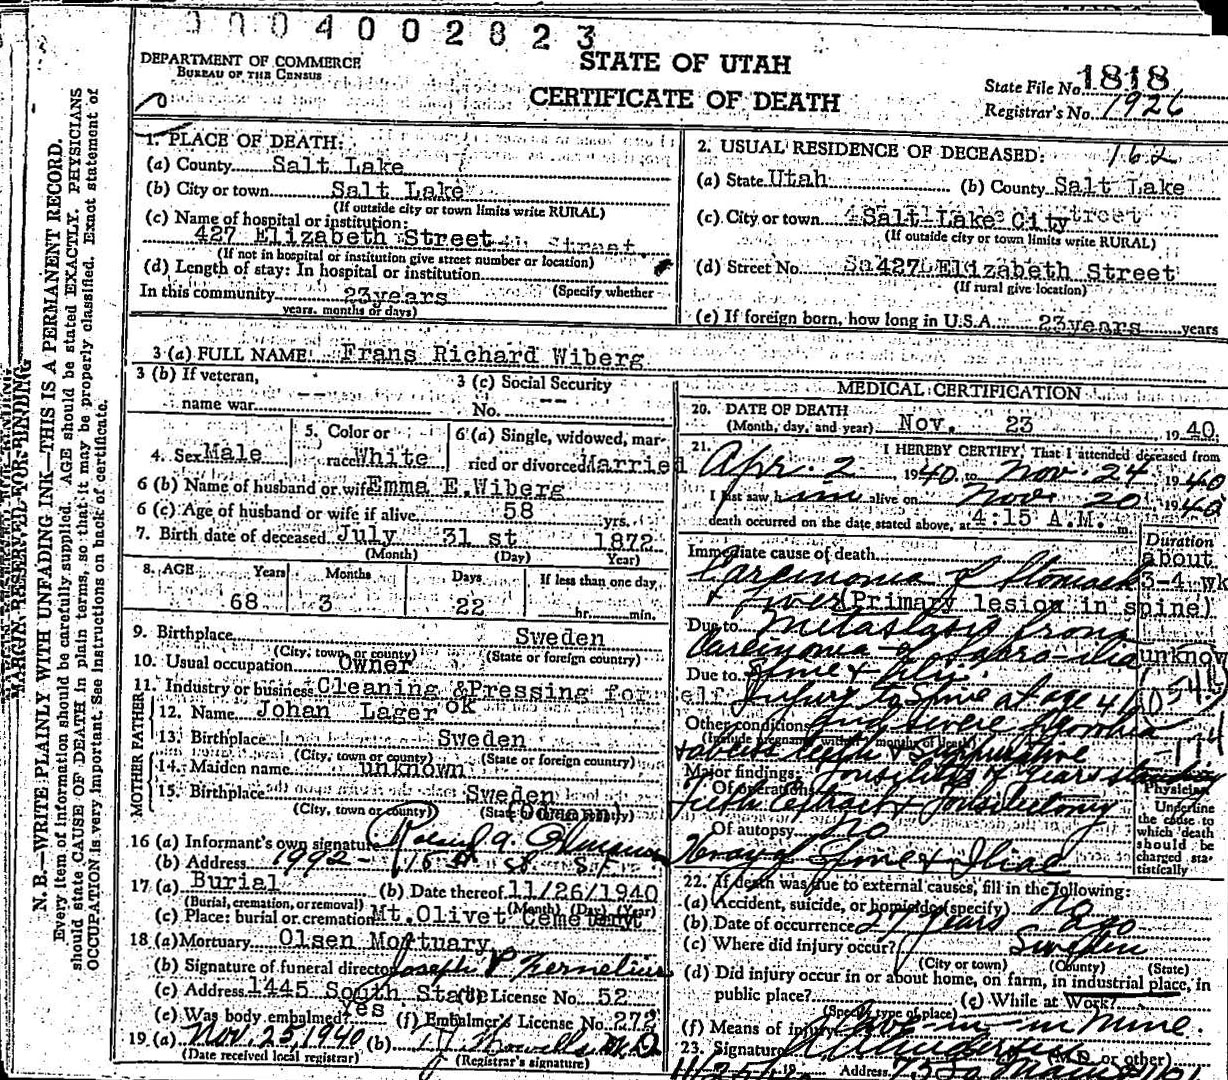 0004002823
DEPARTMENT OF COMMERCE
BUREAU OF THE CENSUS
STATE OF UTAH
CERTIFICATE OF DEATH
State File No. 1818
Registrar's No. 1926
1. PLACE OF DEATH:
(a) County Salt Lake
(b) City or town Salt Lake
(If outside city or town limits write RURAL)
(c) Name of hospital or institution:
427 Elizabeth Street
(If not in hospital or institution give street number or location)
(d) Length of stay: In hospital or institution
In this community 23years (Specify whether
years, months or days)
2. USUAL RESIDENCE OF DECEASED: 162
(a) State Utah (b) County Salt Lake
(c) City or town Salt Lake City
(If outside city or town limits write RURAL)
(d) Street No. So427 Elizabeth Street
(If rural give location)
(e) If foreign born, how long in U.S.A. 23years years
3 (a) FULL NAME Frans Richard Wiberg
3 (b) If veteran, name war --
3 (c) Social Security No. --
4. Sex Male
5. Color or race White
6 (a) Single, widowed, married or divorced Married
6 (b) Name of husband or wife Emma E.Wiberg
6 (c) Age of husband or wife if alive 58 yrs.
7. Birth date of deceased July 31 st 1872
(Month) (Day) Year)
8. AGE Years Months Days If less than one day
68 3 22 hr. min.
9. Birthplace Sweden
(City, town, or county) (State or foreign country)
10. Usual occupation Owner
11. Industry or business Cleaning &Pressing for self
MOTHER FATHER
12. Name Johan Lager ok
13. Birthplace Sweden
(City, town or county) (State or foreign country)
14. Maiden name unknown
15. Birthplace Sweden
(City, town or county)
16 (a) Informant's own signature
(b) Address 1992- 15th St. S.F.
17 (a) Burial (b) Date thereof 11/26/1940
(Burial, cremation, or removal) (Month) (Day) (Year)
(c) Place: burial or cremation Mt.Olivet Cemetery
18 (a) Mortuary Olsen Mortuary
(b) Signature of funeral director Joseph P Kernelius
(c) Address 1445 South State License No. 52
(e) Was body embalmed? Yes (f) Embalmer's License No. 272
19 (a) Nov. 25, 1940 (b) M.D.
(Date received local registrar) (Registrar's signature)
MEDICAL CERTIFICATION
20. DATE OF DEATH
(Month, day, and year) Nov. 23 1940
21. I HEREBY CERTIFY, That I attended deceased from
Apr. 2 1940 to Nov. 24 1940
I last saw him alive on Nov. 20, 1940
death occurred on the date stated above, at 4:15 A.M. m.
Duration
Immediate cause of death about
Carcinoma of Stomach 3-4 wk
& Liver (Primary lesion in spine)
Due to Metastasis from
Carcinoma of Sabro-ilia unknow
Due to Spine & Ily.
Injury to Spine at age 46
Other conditions and severe
(Include pregnancy within months of death)
Major findings: Tonsilitis
Of operations
Teeth extract & Tonsilectomy
Of autopsy no
Xray of Spine & Iliac
Physician
Underline the cause to which death should be charged statistically
22. If death was due to external causes, fill in the following:
(a) Accident, suicide, or homicide (specify) no
(b) Date of occurrence 27 years ago
(c) Where did injury occur? Sweden
(City or town) (County) (State)
(d) Did injury occur in or about home, on farm, in industrial place, in public place?
(Specify type of place) (e) While at Work?
(f) Means of injury Cave-in-in Mine.
23. Signature (M.D. or other)
Address
MARGIN RESERVED FOR BINDING
N. B.—WRITE PLAINLY WITH UNFADING INK—THIS IS A PERMANENT RECORD.
Every item of information should be carefully supplied. AGE should be stated EXACTLY. PHYSICIANS
should state CAUSE OF DEATH in plain terms, so that it may be properly classified. Exact statement of
OCCUPATION is very important. See instructions on back of certificate.